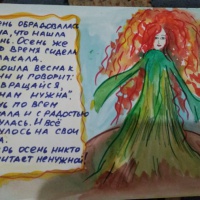 ЕНЬ ОБРАДОВАЛАСЬ
НА, ЧТО НАШЛА
ЕНЬ. ОСЕНЬ ЖЕ
О ВРЕМЯ СИДЕЛА
ЛАКАЛА.
ОШЛА ВЕСНА К
НИ И ГОВОРИТ:
ВРАЩАЙСЯ,
НАМ НУЖНА".
НЬ ПО ВСЕМ
АЛА И С РАДОСТЬЮ
УЛАСЬ. И ВСЁ
УЛОСЬ НА СВОИ
А.
РЬ ОСЕНЬ НИКТО
ИТАЕТ НЕНУЖНОЙ!